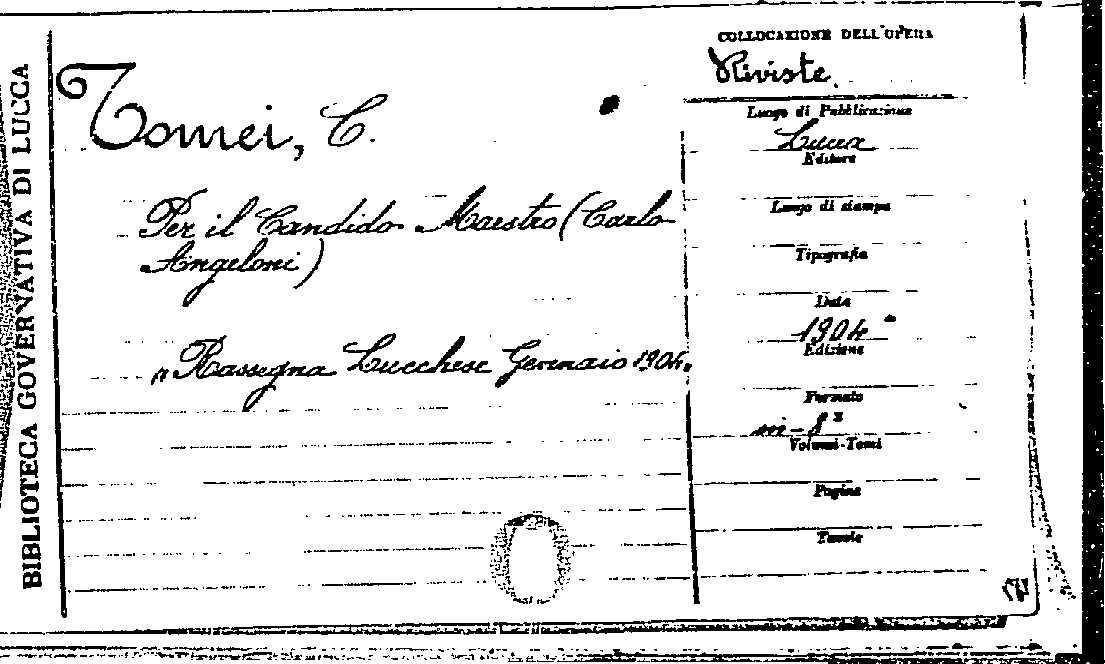 BIBLIOTECA GOVERNATIVA DI LUCCA
Tomei, C.
Per il Candido Maestro (Carlo
Angeloni)
"Rassegna Lucchese Gennaio 1904"
COLLOCAZIONE DELL'OPERA
Riviste.
Luogo di Pubblicazione
Lucca
Editore
Luogo di stampa
Tipografia
Data
1904
Edizione
Formato
in-8°
Volumi-Tomi
Pagine
Tavole